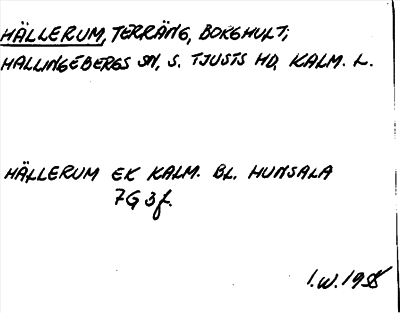 HÄLLERUM, TERRÄNG, BORGHULT;
HALLINGEBERGS SN, S. TJUSTS HD, KALM. L.
HÄLLERUM EK KALM. BL. HUNSALA
7G 3f.
I.W. 1958